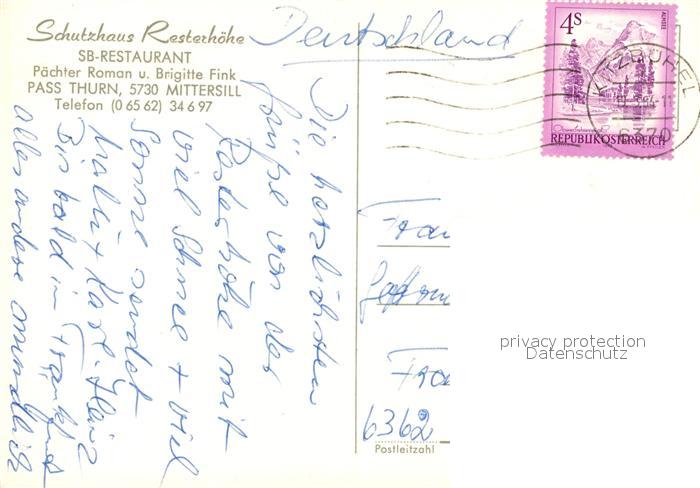 Schutzhaus Resterhöhe
SB-RESTAURANT
Pächter Roman u. Brigitte Fink
PASS THURN, 5730 MITTERSILL
Telefon (0 65 62) 34 6 97
Deutschland
4S
ALMSEE
REPUBLIK ÖSTERREICH
KITZBÜHEL
6370
Die herzlichsten
Grüße von der
Resterhöhe mit
viel Schnee + viel
Sonne sendet
Karl-Heinz
Bis bald in Frankfurt
alles andere mündlich
Frau
Fra
6362
Postleitzahl
privacy protection
Datenschutz